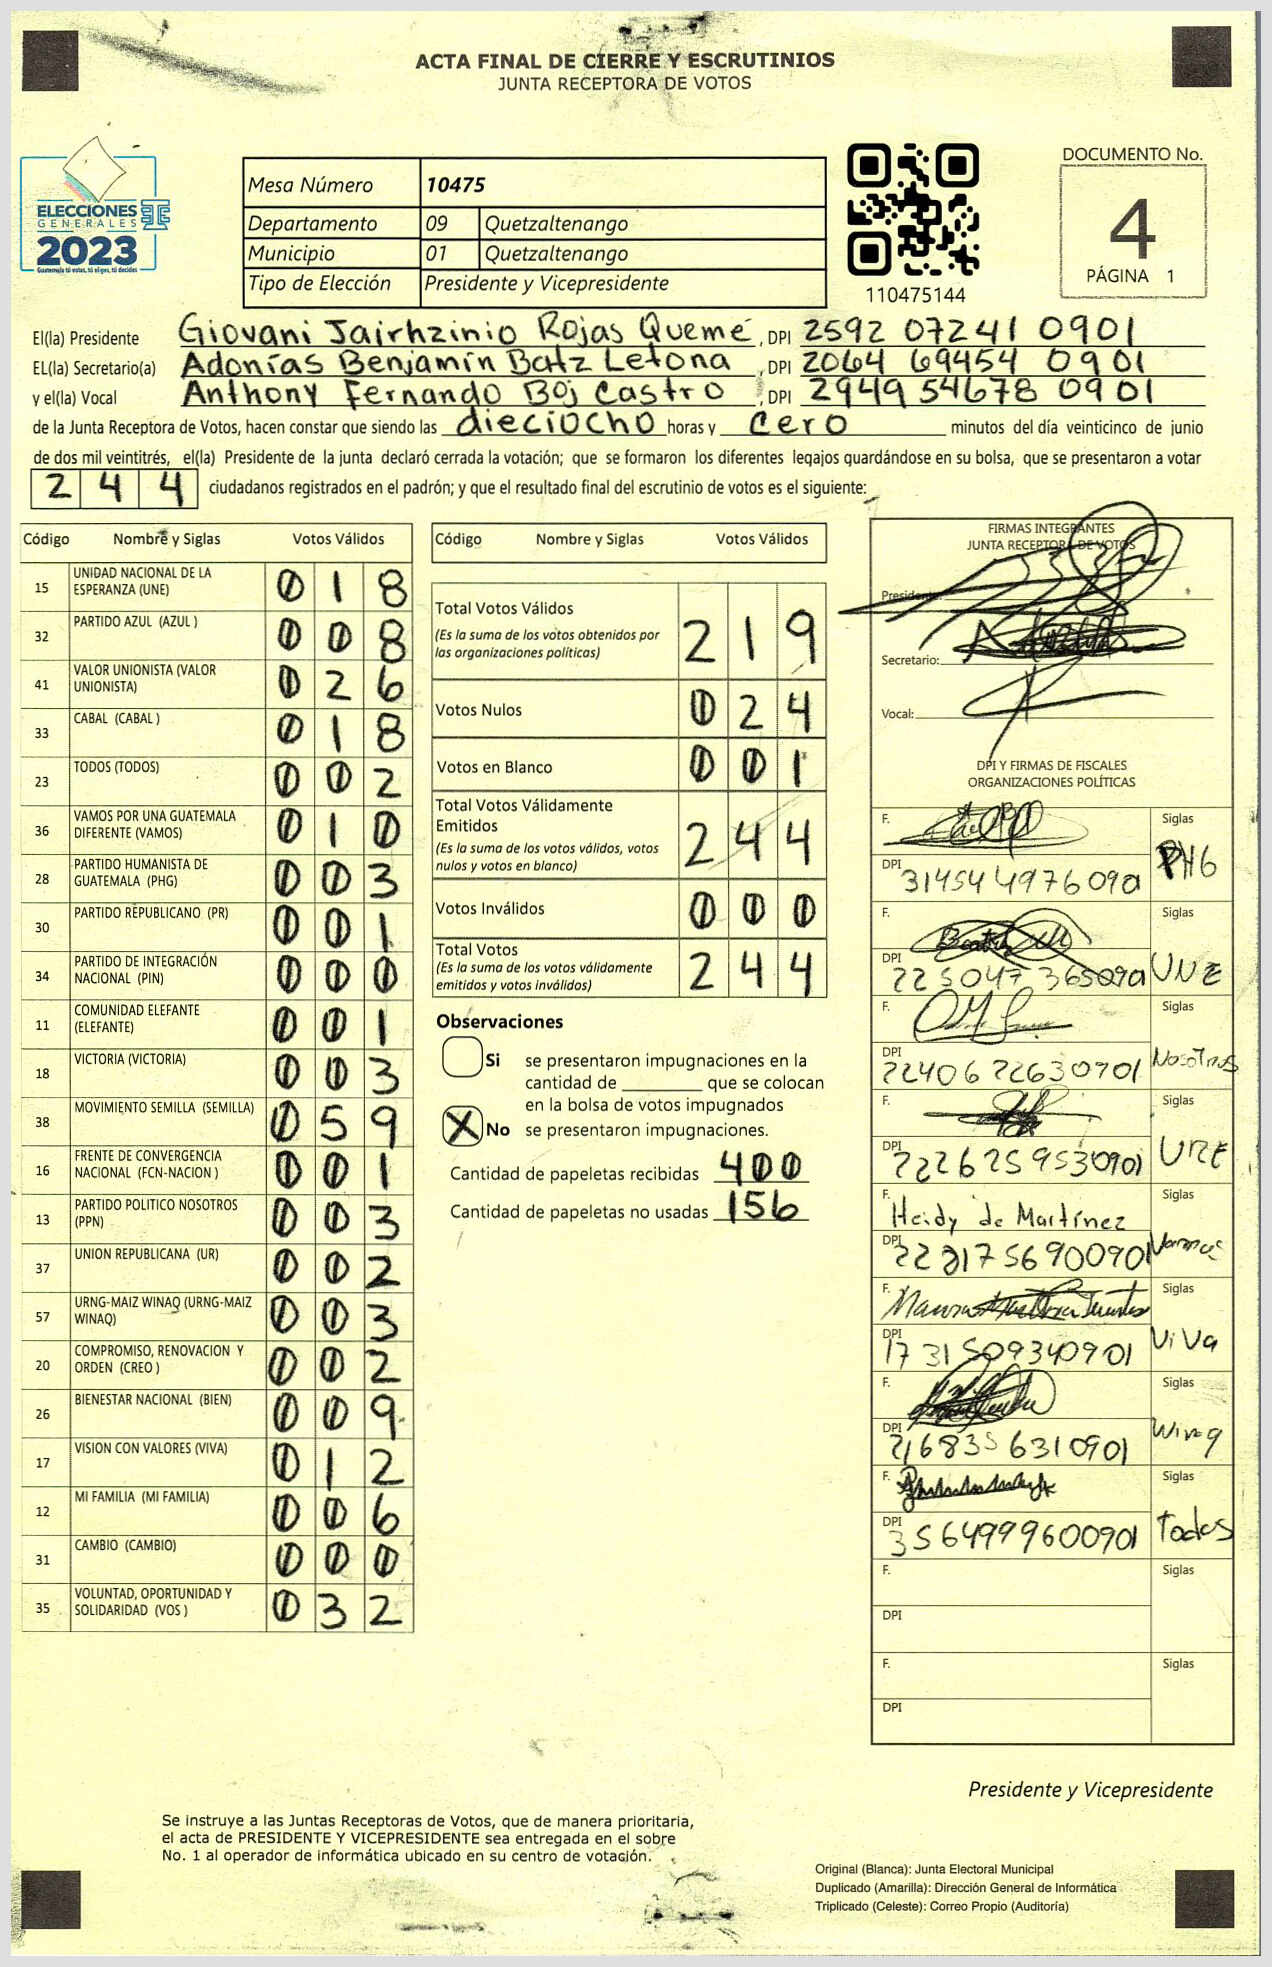 ACTA FINAL DE CIERRE Y ESCRUTINIOS
JUNTA RECEPTORA DE VOTOS
ELECCIONES
GENERALES
2023
Guatemala tú votas, tú eliges, tú decides
Mesa Número 10475
Departamento 09 Quetzaltenango
Municipio 01 Quetzaltenango
Tipo de Elección Presidente y Vicepresidente
110475144
DOCUMENTO No.
4
PÁGINA 1
El(la) Presidente Giovani Jairhzinio Rojas Quemé, DPI 2592 07241 0901
EL(la) Secretario(a) Adonías Benjamín Batz Letona, DPI 2064 69454 0901
y el(la) Vocal Anthony Fernando Boj Castro, DPI 2949 54678 0901
de la Junta Receptora de Votos, hacen constar que siendo las dieciocho horas y cero minutos del día veinticinco de junio
de dos mil veintitrés, el(la) Presidente de la junta declaró cerrada la votación; que se formaron los diferentes legajos guardándose en su bolsa, que se presentaron a votar
244 ciudadanos registrados en el padrón; y que el resultado final del escrutinio de votos es el siguiente:
Código Nombre y Siglas Votos Válidos
15 UNIDAD NACIONAL DE LA ESPERANZA (UNE) 018
32 PARTIDO AZUL (AZUL ) 008
41 VALOR UNIONISTA (VALOR UNIONISTA) 026
33 CABAL (CABAL ) 018
23 TODOS (TODOS) 002
36 VAMOS POR UNA GUATEMALA DIFERENTE (VAMOS) 010
28 PARTIDO HUMANISTA DE GUATEMALA (PHG) 003
30 PARTIDO REPUBLICANO (PR) 001
34 PARTIDO DE INTEGRACIÓN NACIONAL (PIN) 000
11 COMUNIDAD ELEFANTE (ELEFANTE) 001
18 VICTORIA (VICTORIA) 003
38 MOVIMIENTO SEMILLA (SEMILLA) 059
16 FRENTE DE CONVERGENCIA NACIONAL (FCN-NACION ) 001
13 PARTIDO POLITICO NOSOTROS (PPN) 003
37 UNION REPUBLICANA (UR) 002
57 URNG-MAIZ WINAQ (URNG-MAIZ WINAQ) 003
20 COMPROMISO, RENOVACION Y ORDEN (CREO ) 002
26 BIENESTAR NACIONAL (BIEN) 009
17 VISION CON VALORES (VIVA) 012
12 MI FAMILIA (MI FAMILIA) 006
31 CAMBIO (CAMBIO) 000
35 VOLUNTAD, OPORTUNIDAD Y SOLIDARIDAD (VOS ) 032
Código Nombre y Siglas Votos Válidos
Total Votos Válidos 219
(Es la suma de los votos obtenidos por
las organizaciones políticas)
Votos Nulos 024
Votos en Blanco 001
Total Votos Válidamente
Emitidos 244
(Es la suma de los votos válidos, votos
nulos y votos en blanco)
Votos Inválidos 000
Total Votos 244
(Es la suma de los votos válidamente
emitidos y votos inválidos)
Observaciones
Si se presentaron impugnaciones en la
cantidad de ________ que se colocan
en la bolsa de votos impugnados
X No se presentaron impugnaciones.
Cantidad de papeletas recibidas 400
Cantidad de papeletas no usadas 156
FIRMAS INTEGRANTES
JUNTA RECEPTORA DE VOTOS
Presidente:
Secretario:
Vocal:
DPI Y FIRMAS DE FISCALES
ORGANIZACIONES POLÍTICAS
F. Siglas
DPI PHG
F. Siglas
DPI UNE
F. Siglas
DPI 2240622630901 Nosotros
F. Siglas
DPI 2226259530901
F. Heidy de Martínez Siglas
DPI
F. Siglas
DPI 1731509340901 ViVa
F. Siglas
DPI 2168356310901 Winaq
F. Siglas
DPI 3564999600901 Todos
F. Siglas
DPI
F. Siglas
DPI
Presidente y Vicepresidente
Se instruye a las Juntas Receptoras de Votos, que de manera prioritaria,
el acta de PRESIDENTE Y VICEPRESIDENTE sea entregada en el sobre
No. 1 al operador de informática ubicado en su centro de votación.
Original (Blanca): Junta Electoral Municipal
Duplicado (Amarilla): Dirección General de Informática
Triplicado (Celeste): Correo Propio (Auditoría)